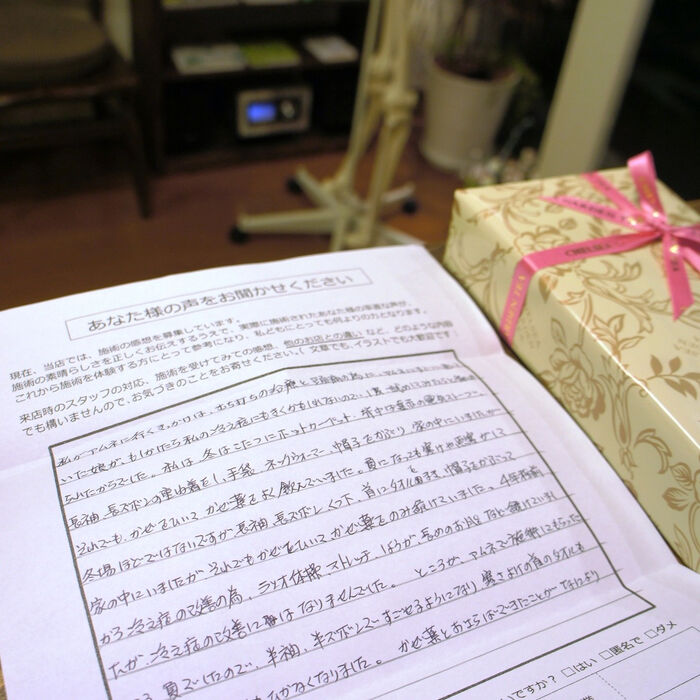 あなた様の声をお聞かせください
現在、当店では、施術の感想を募集しています。
施術の素晴らしさを正しくお伝えするうえで、実際に施術されたあなた様の率直な声が、
これから施術を体験する方にとって参考になり、私どもにとっても何よりの力となります。
来店時のスタッフの対応、施術を受けてみての感想、他のお店との違い など、どのような内容
でも構いませんので、お気づきのことをお寄せください。( 文章でも、イラストでも大歓迎です
私がアムネに行くきっかけは、
いた娘が、もしかしたら私の冷え症にもきくかもしれないので、1度
ちれたからでした。私は、冬はこたつにホットカーペット、
長袖、長ズボンの重ね着をし、手袋、ネックウォーマー、帽子をかぶり、家の中にいましたが
それでも、かぜをひいて、かぜ薬をよく飲んでいました。夏になっても
冬場ほどではないですが長袖、長ズボン、くつ下、首にタオルをまき、帽子をかぶって
家の中にいましたが、それでもかぜをひいてかぜ薬をのみ続けていました。4年程前
から冷え症の改善の為、ラジオ体操、ストレッチ
たが、冷え症の改善にはなりませんでした。ところが、アムネで施術してもらった
夏でしたので、半袖、半ズボンですごせるようになり
ひかなくなりました。かぜ薬とおさらばできたことがなにより
ですか? □はい □匿名で □ダメ
CHELSEA